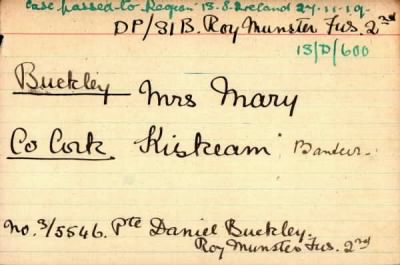 Case passed to Region 13. S. Ireland 27-11-19.
DP/31 B. Roy Munster Fus. 2nd
13/D/600
Buckley Mrs Mary
Co Cork. Kiskeam Banteer.
No. 3/5546. Pte Daniel Buckley.
Roy Munster Fus. 2nd